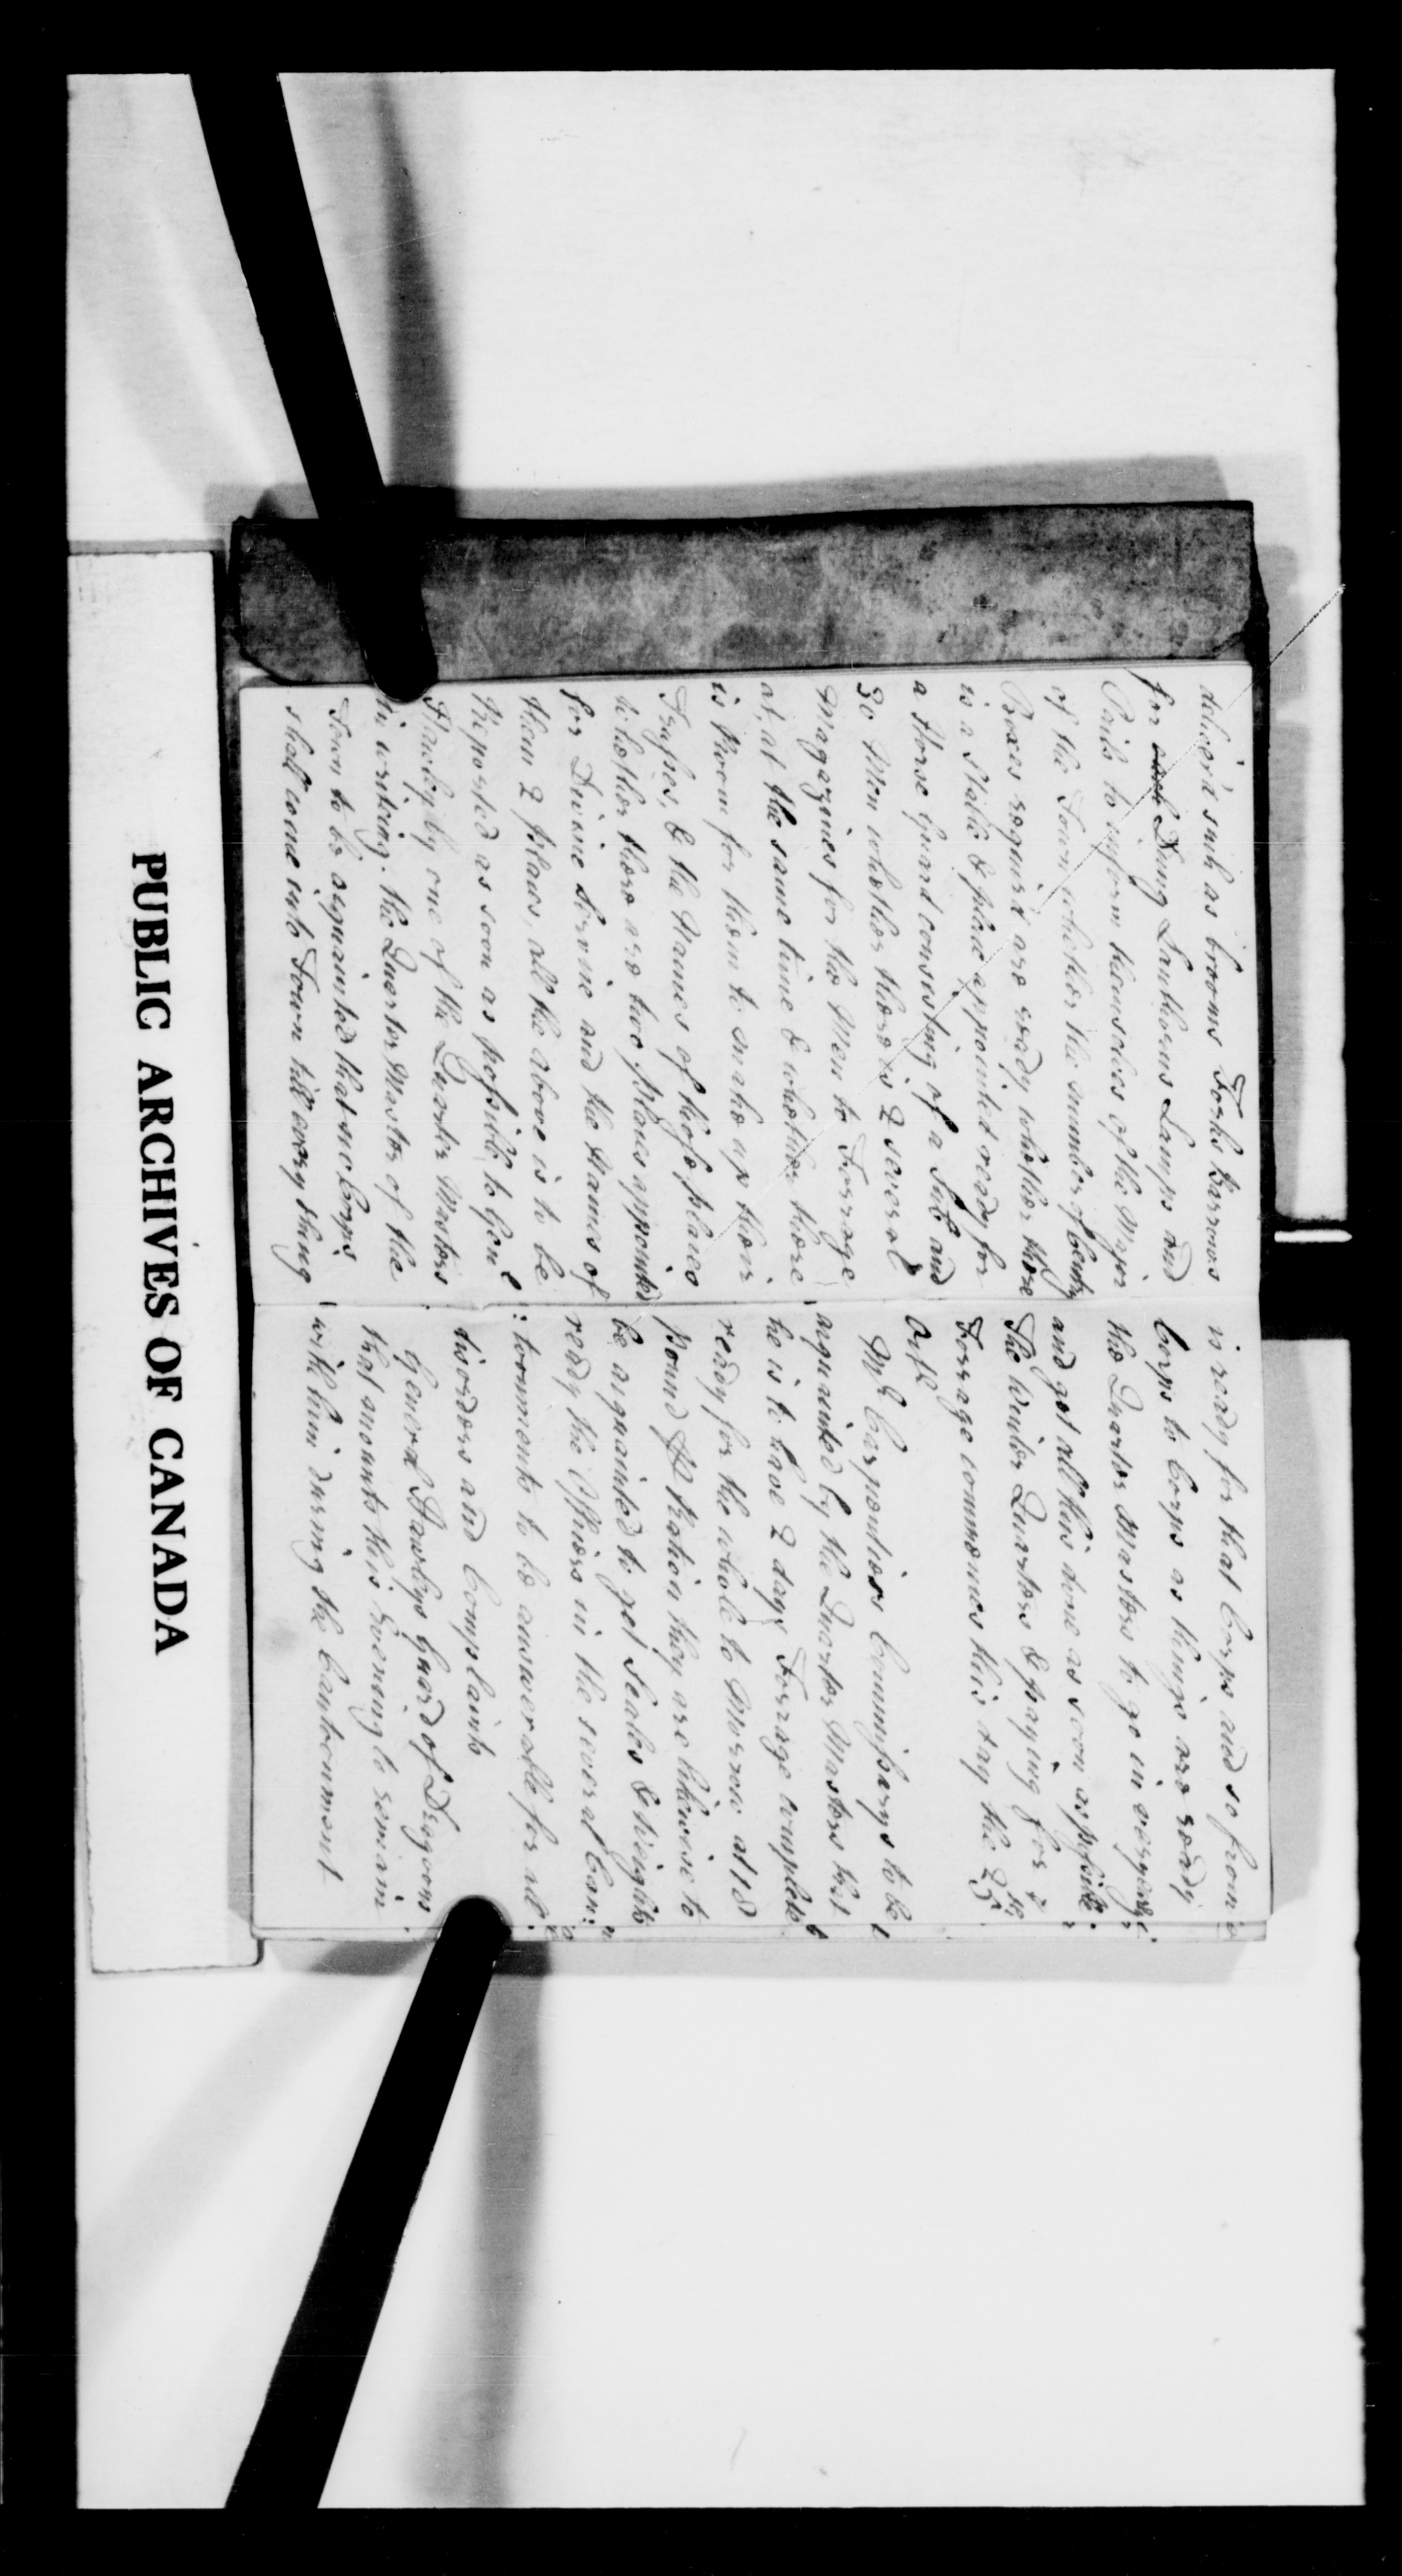 deliver'd such as brooms Forks Barrows
for such Dung Lanthorns Lamps and
Pails to inform themselves of the Major
of the Town whether the number of Centry
Boxes requir'd are ready whether there
is a Stable & place appointed ready for
a Horse Guard consisting of a Sub and
30 Men whether there is 2 several
Magazines for the Men to Forrage
at, at the same time & whether there
is Room for them to make up their
Trusses, & the Names of those places
whether there are two places appointed
for Divine Service and the Names of
them 2 places, all the above is to be
Reported as soon as possible to Genl
Hawley by one of the Quarter Masters
in writing. the Quarter Master of the
Town to be acquainted that no Corps
shall come into Town till every thing
is ready for that Corps and so from
Corps to Corps as things are ready
the Quarter Masters to go in
and get all this done as soon as possible
The Winter Quarters & paying for
Forrage commences this day the 25th
Octr
Mr Carpenties Commissarys to be
acquainted by the Quarter Masters that
he is to have 2 days Forrage compleat
ready for the whole to Morrow at 18
pound Pr Ration they are likewise to
be acquainted to get Scales & Weights
ready the Officers in the several Can:
:toonments to be answerable for all
disorders and Complaints
General Hawleys Guard of Dragoons
that mounts this Evening to remain
with him during the Cantoonment
PUBLIC ARCHIVES OF CANADA